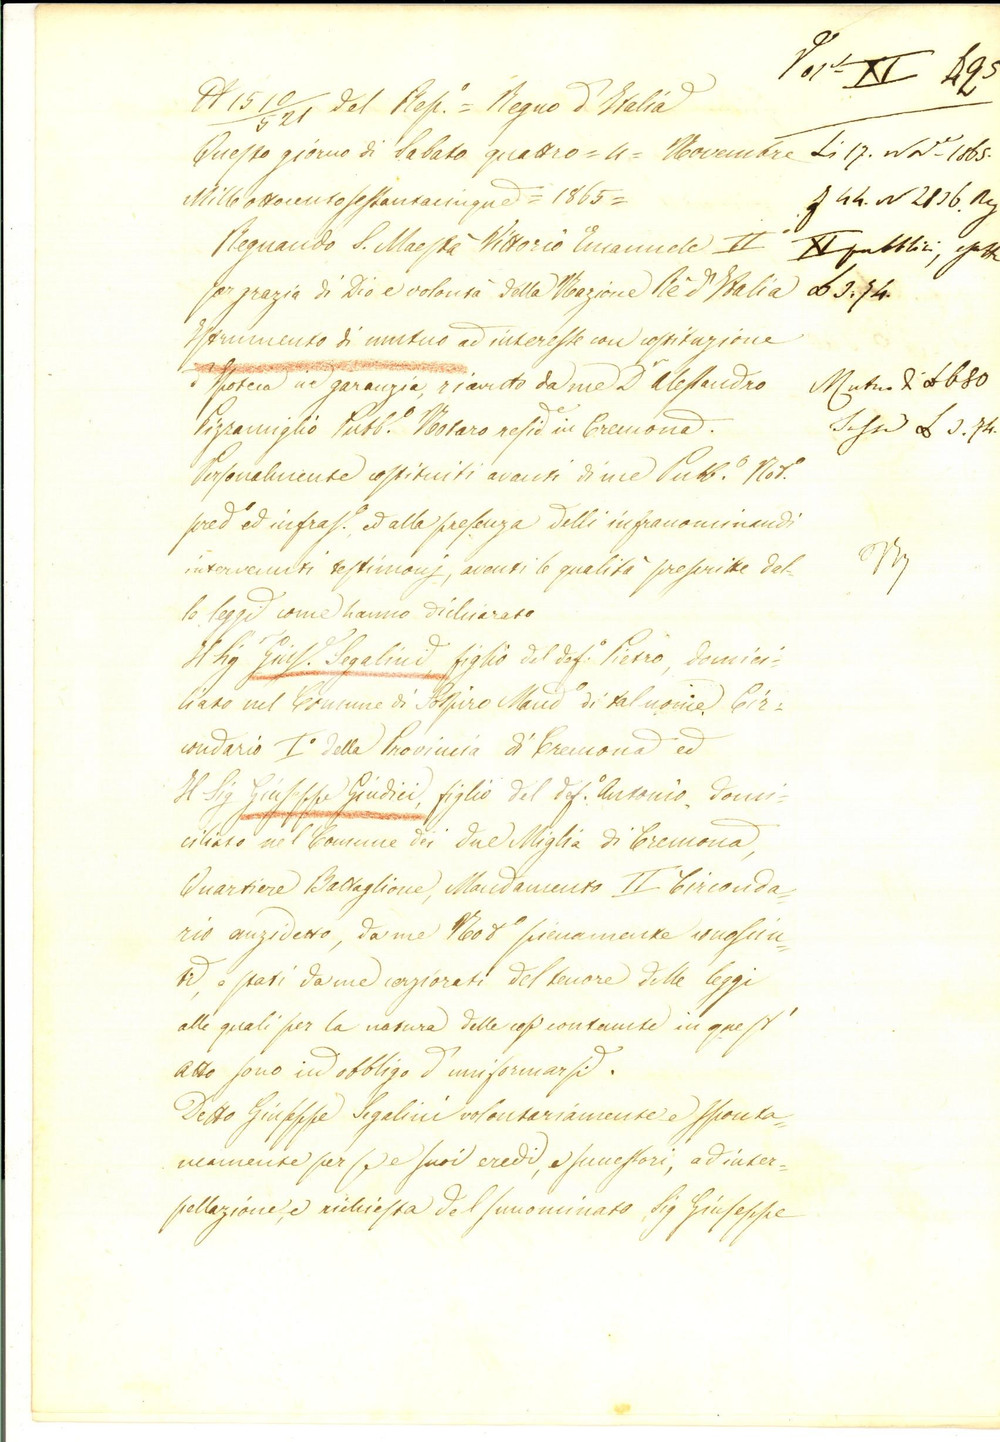 Vol. XI 495
N 1510/521 del Rep.o = Regno d'Italia
Questo giorno di Sabato quattro = 4 = Novembre
Milleottocentosessantacinque = 1865 =
Regnando S. Maestà Vittorio Emanuele II
per grazia di Dio e volontà della Nazione Re d'Italia
Istrumento di mutuo ad interesse con costituzione
d'Ipoteca in garanzia, ricevuto da me D.r Alessandro
Pizzamiglio Pubb.o Notaro resid.e in Cremona.
Personalmente costituiti avanti di me Pubb.o Not.o
pred.o ed infras.o, ed alla presenza delli infranominandi
intervenuti testimonj, aventi le qualità prescritte dal-
le leggi come hanno dichiarato
Il Sig Gius.e Segalini, figlio del def.o Pietro, domici-
liato nel Comune di Sospiro Mand.o di tal nome, Cir-
condario I.o della Provincia di Cremona ed
Il Sig Giuseppe Giudici, figlio del def.o Antonio, domi-
ciliato nel Comune dei due Miglia di Cremona,
Quartiere Battaglione, Mandamento II Circonda-
rio anzidetto, da me Not.o pienamente conosciu-
ti, e stati da me cerziorati del tenore delle leggi
alle quali per la natura delle cose contenute in quest'
atto sono in obbligo d'uniformarsi.
Detto Giuseppe Segalini volontariamente e sponta-
neamente per se e suoi eredi, e successori, ad inter-
pellazione, e richiesta del sunnominato Sig Giuseppe
Li 17. 1865.
44. N 2836. Reg
XI pubblici,
£ 3.74.
Mutuo di £ 680
Tassa £ 3.74.